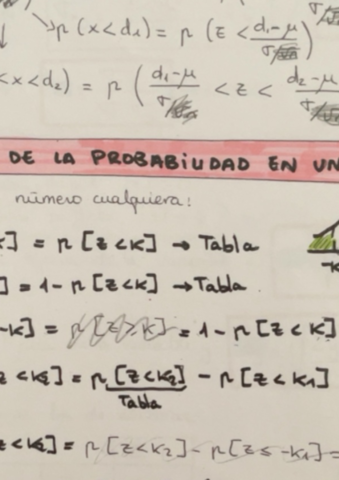 p (x < d₁) = p (z < d₁-μ / σ)
< x < d₂) = p ( d₁-μ / σ < z < d₂-μ / σ
DE LA PROBABILIDAD EN UN
número cualquiera:
k] = p [z < k] → Tabla
] = 1 - p [z < k] → Tabla
-k] = p [z > k] = 1 - p [z < k]
-k
z < k₂] = p [z < k₂] - p [z < k₁]
Tabla
z < k₂] = p [z < k₂] - p [z ≤ -k₁] =